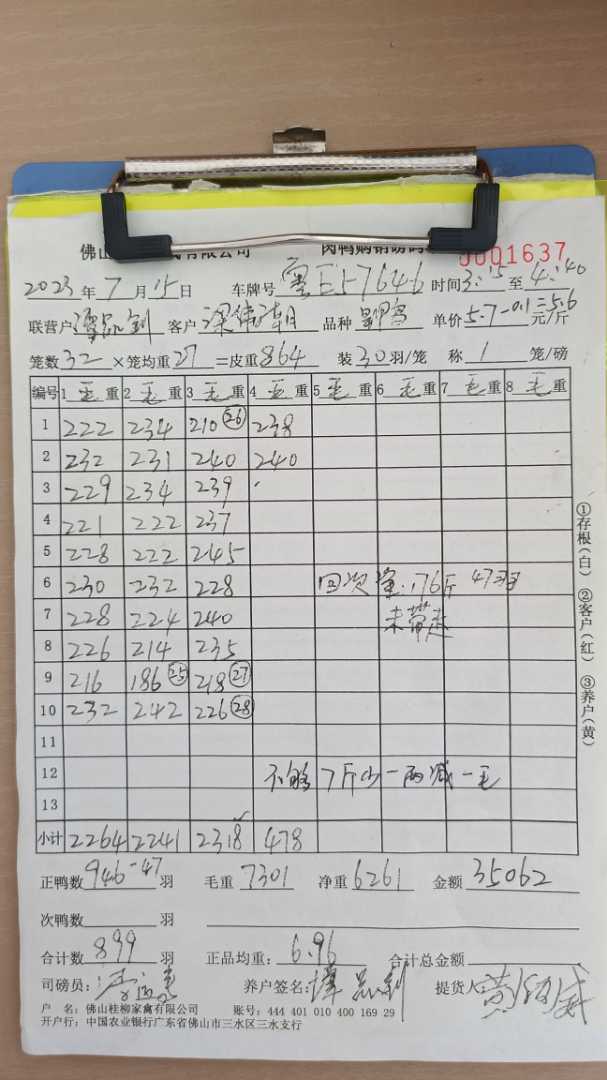 佛山 有限公司 肉鸭购销磅码
0001637
2023年7月15日 车牌号粤E57646 时间3:15至4:40
联营户 客户梁伟 品种 单价5.7-0.1=5.6元/斤
笼数32×笼均重27=皮重864 装30羽/笼 称1笼/磅
编号 1毛重 2毛重 3毛重 4毛重 5毛重 6毛重 7毛重 8毛重
1 222 234 210(26) 238
2 232 231 240 240
3 229 234 239
4 221 222 237
5 228 222 245
6 230 232 228 四次 176斤 47羽
7 228 224 240 未带走
8 226 214 235
9 216 186(25) 218(27)
10 232 242 226(28)
11
12 不够7斤少一两减一毛
13
小计 2264 2241 2318 478
正鸭数946-47羽 毛重7301 净重6261 金额35062
次鸭数 羽
合计数899羽 正品均重:6.96 合计总金额
司磅员: 养户签名:谭 钊 提货人 黄 威
户 名:佛山桂柳家禽有限公司 账号:444 401 010 400 169 29
开户行:中国农业银行广东省佛山市三水区三水支行
①存根(白) ②客户(红) ③养户(黄)